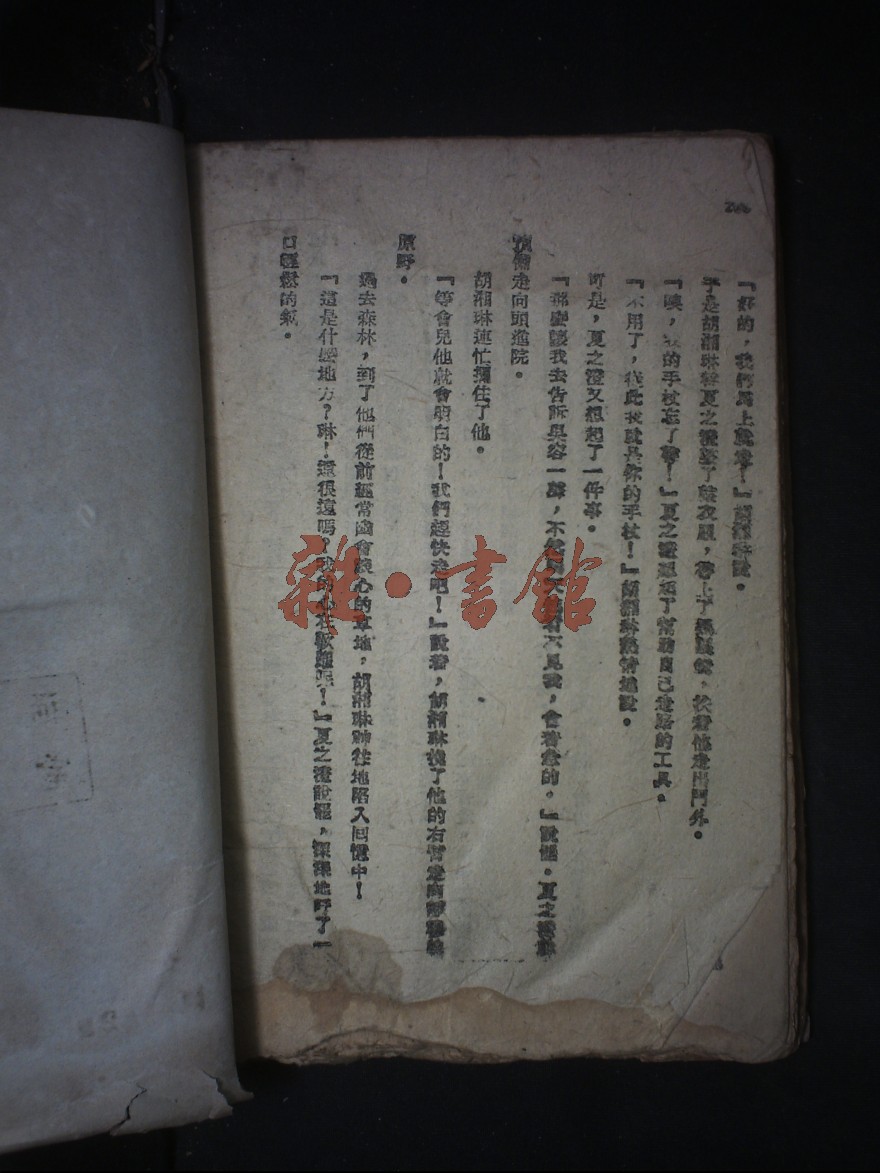 『好的，我們馬上就走！』胡湘琳說。
于是胡湘琳幫夏之澄穿了衣服，扶着他走出門外。
『噢，我的手杖忘了拿！』夏之澄想起了幫助自己走路的工具。
『不用了，從此我就是你的手杖！』胡湘琳熱情地說。
可是，夏之澄又想起了一件事。
『那麼讓我去告訴吳容一聲，不然看不見我，會着急的。』說罷。夏之澄
預備走向頭進院。
胡湘琳連忙攔住了他。
『等會兒他就會明白的！我們趕快走吧！』說着，胡湘琳挽了他的右臂走向
原野。
過去森林，到了他們從前經常談心的草地，胡湘琳神往地陷入回憶中！
『這是什麼地方？琳！還很遠嗎？我的心在跳躍呢！』夏之澄說罷，深深地呼了一
口輕鬆的氣。
雜·書館